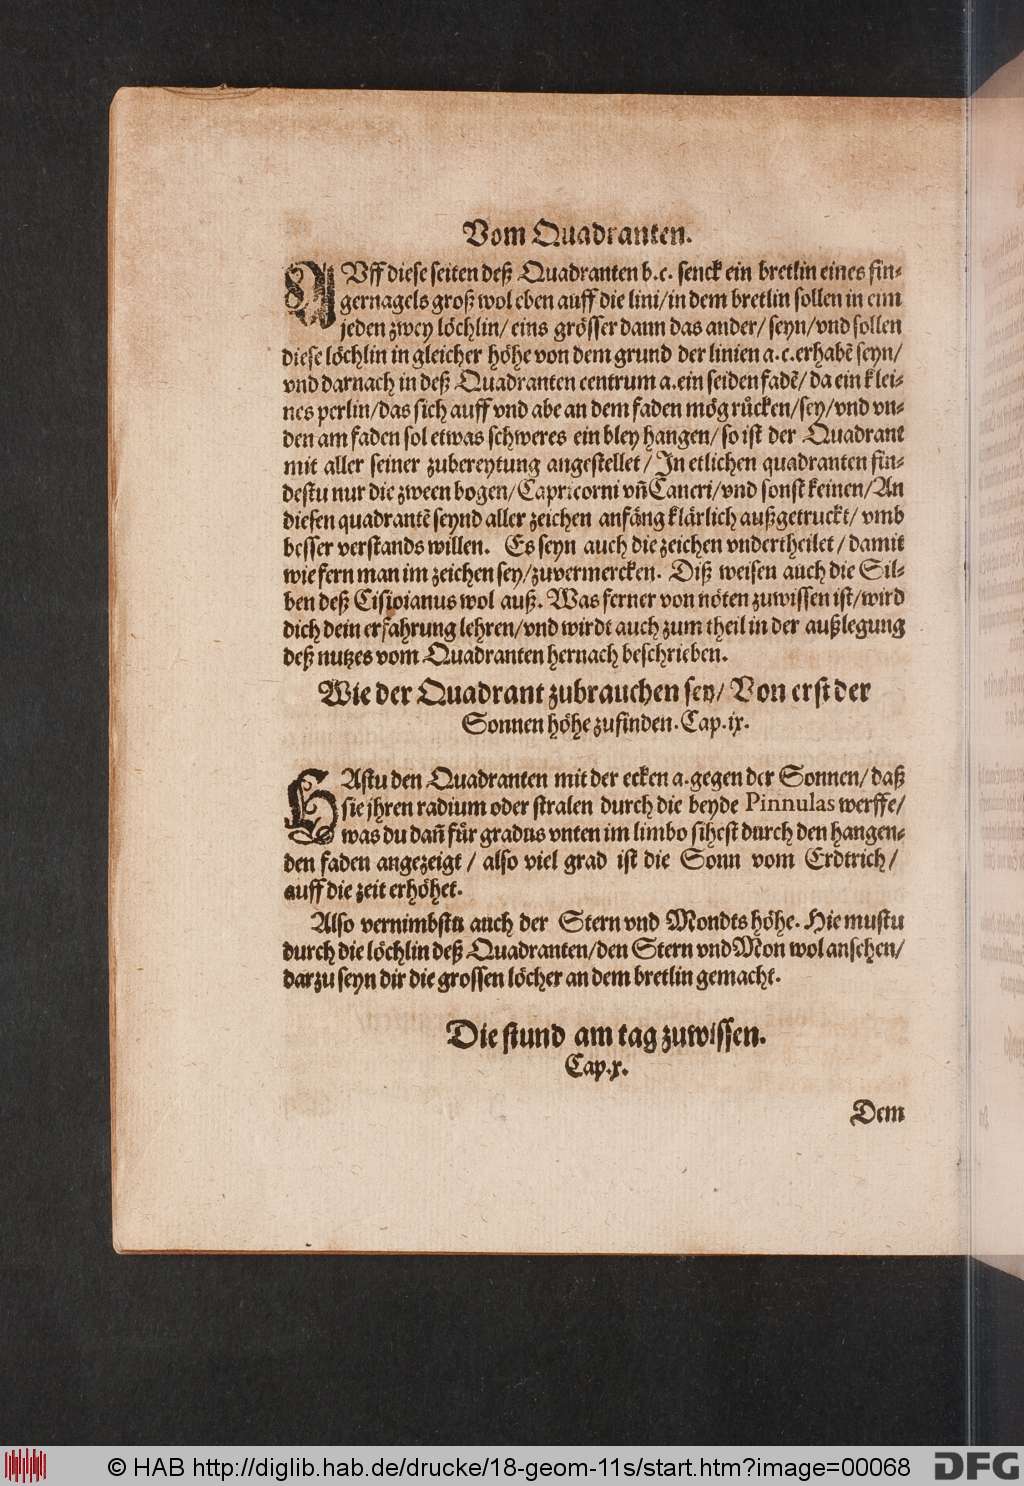 Vom Quadranten.
AUff diese seiten deß Quadranten b.c. senck ein bretlin eines fin-
gernagels groß wol eben auff die lini/in dem bretlin sollen in eim
jeden zwey löchlin/ eins grösser dann das ander/ seyn/vnd sollen
diese löchlin in gleicher höhe von dem grund der linien a.c.erhabē seyn/
vnd darnach in deß Quadranten centrum a.ein seiden fadē/ da ein klei-
nes perlin/das sich auff vnd abe an dem faden mög rücken/sey/vnd vn-
den am faden sol etwas schweres ein bley hangen/ so ist der Quadrant
mit aller seiner zubereytung angestellet/ In etlichen quadranten fin-
destu nur die zween bogen/Capricorni vñ Cancri/vnd sonst keinen/An
diesen quadrantē seynd aller zeichen anfäng klärlich außgetruckt/ vmb
besser verstands willen. Es seyn auch die zeichen vndertheilet/ damit
wie fern man im zeichen sey/zuvermercken. Diß weisen auch die Sil-
ben deß Cisioianus wol auß. Was ferner von nöten zuwissen ist/wird
dich dein erfahrung lehren/vnd wirdt auch zum theil in der außlegung
deß nutzes vom Quadranten hernach beschrieben.
Wie der Quadrant zubrauchen sey/ Von erst der
Sonnen höhe zufinden. Cap.ix.
HAstu den Quadranten mit der ecken a.gegen der Sonnen/ daß
sie jhren radium oder stralen durch die beyde Pinnulas werffe/
was du dañ für gradus vnten im limbo sihest durch den hangen-
den faden angezeigt/ also viel grad ist die Sonn vom Erdtrich/
auff die zeit erhöhet.
Also vernimbstu auch der Stern vnd Mondts höhe. Hie mustu
durch die löchlin deß Quadranten/den Stern vnd Mon wol ansehen/
darzu seyn dir die grossen löcher an dem bretlin gemacht.
Die stund am tag zuwissen.
Cap.x.
Dem
© HAB http://diglib.hab.de/drucke/18-geom-11s/start.htm?image=00068
DFG